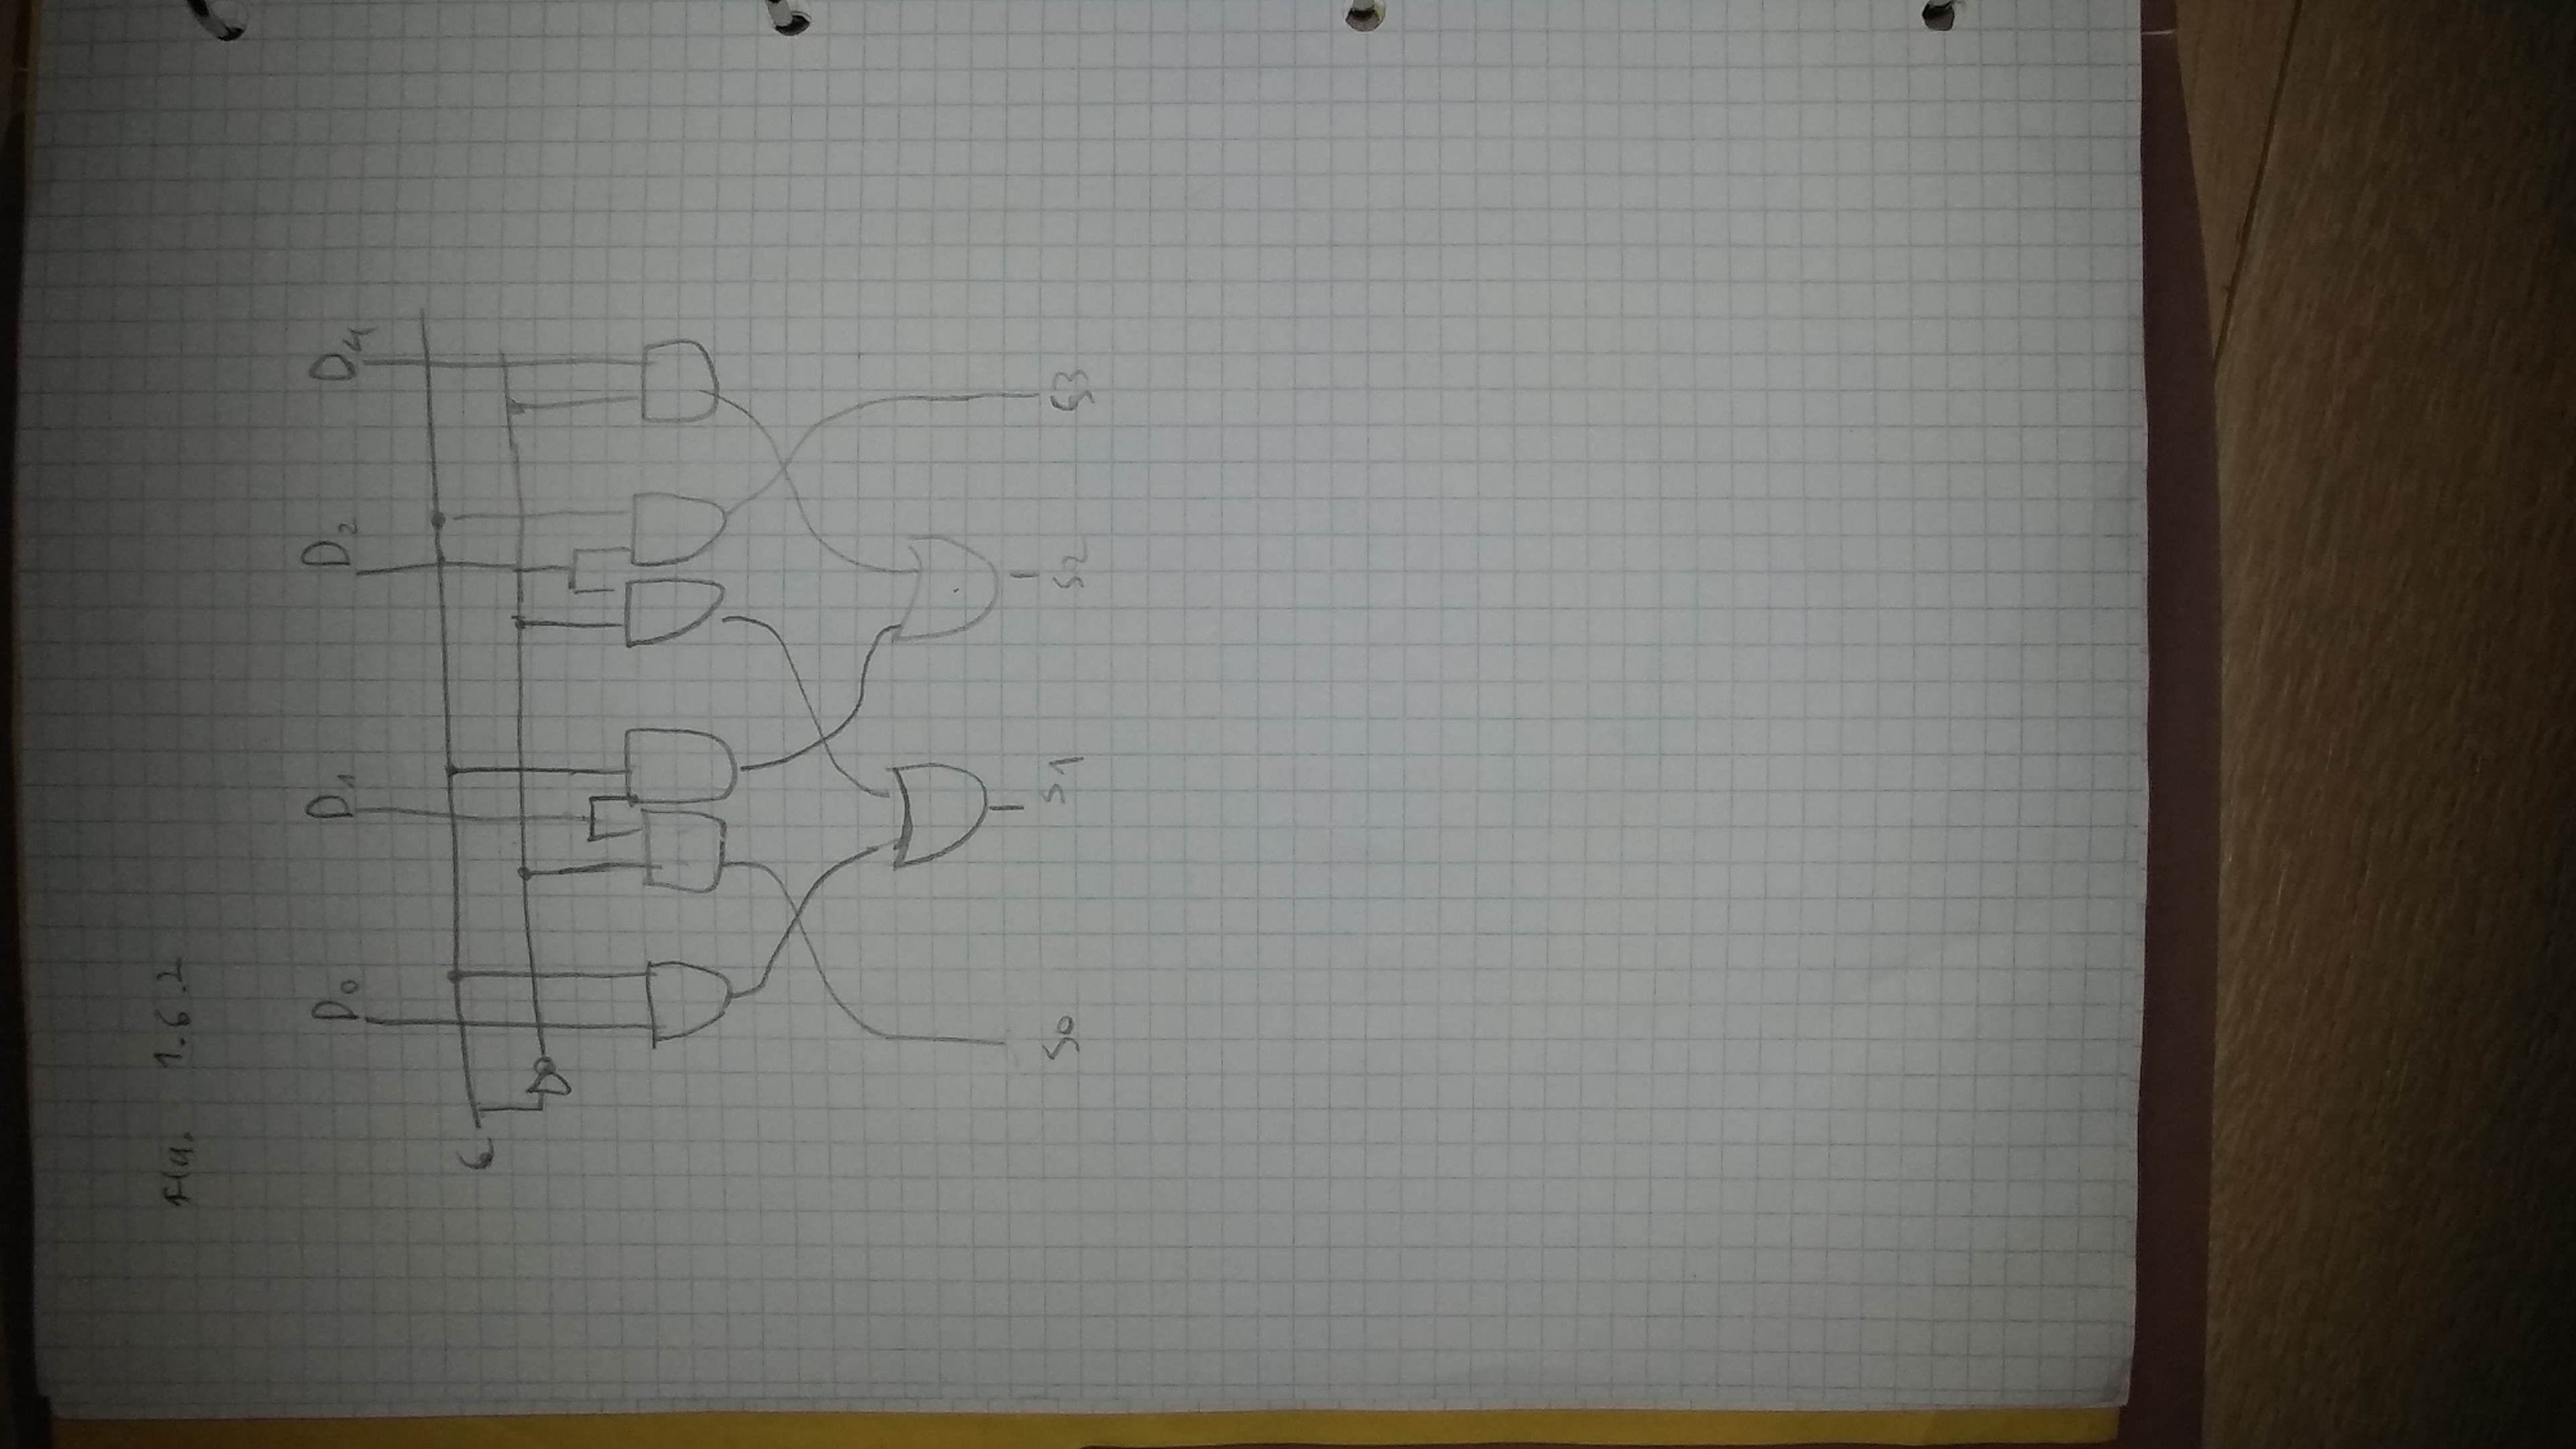 1.6.2
D0 D1 D2 D4
C
S0 S1 S2 S3